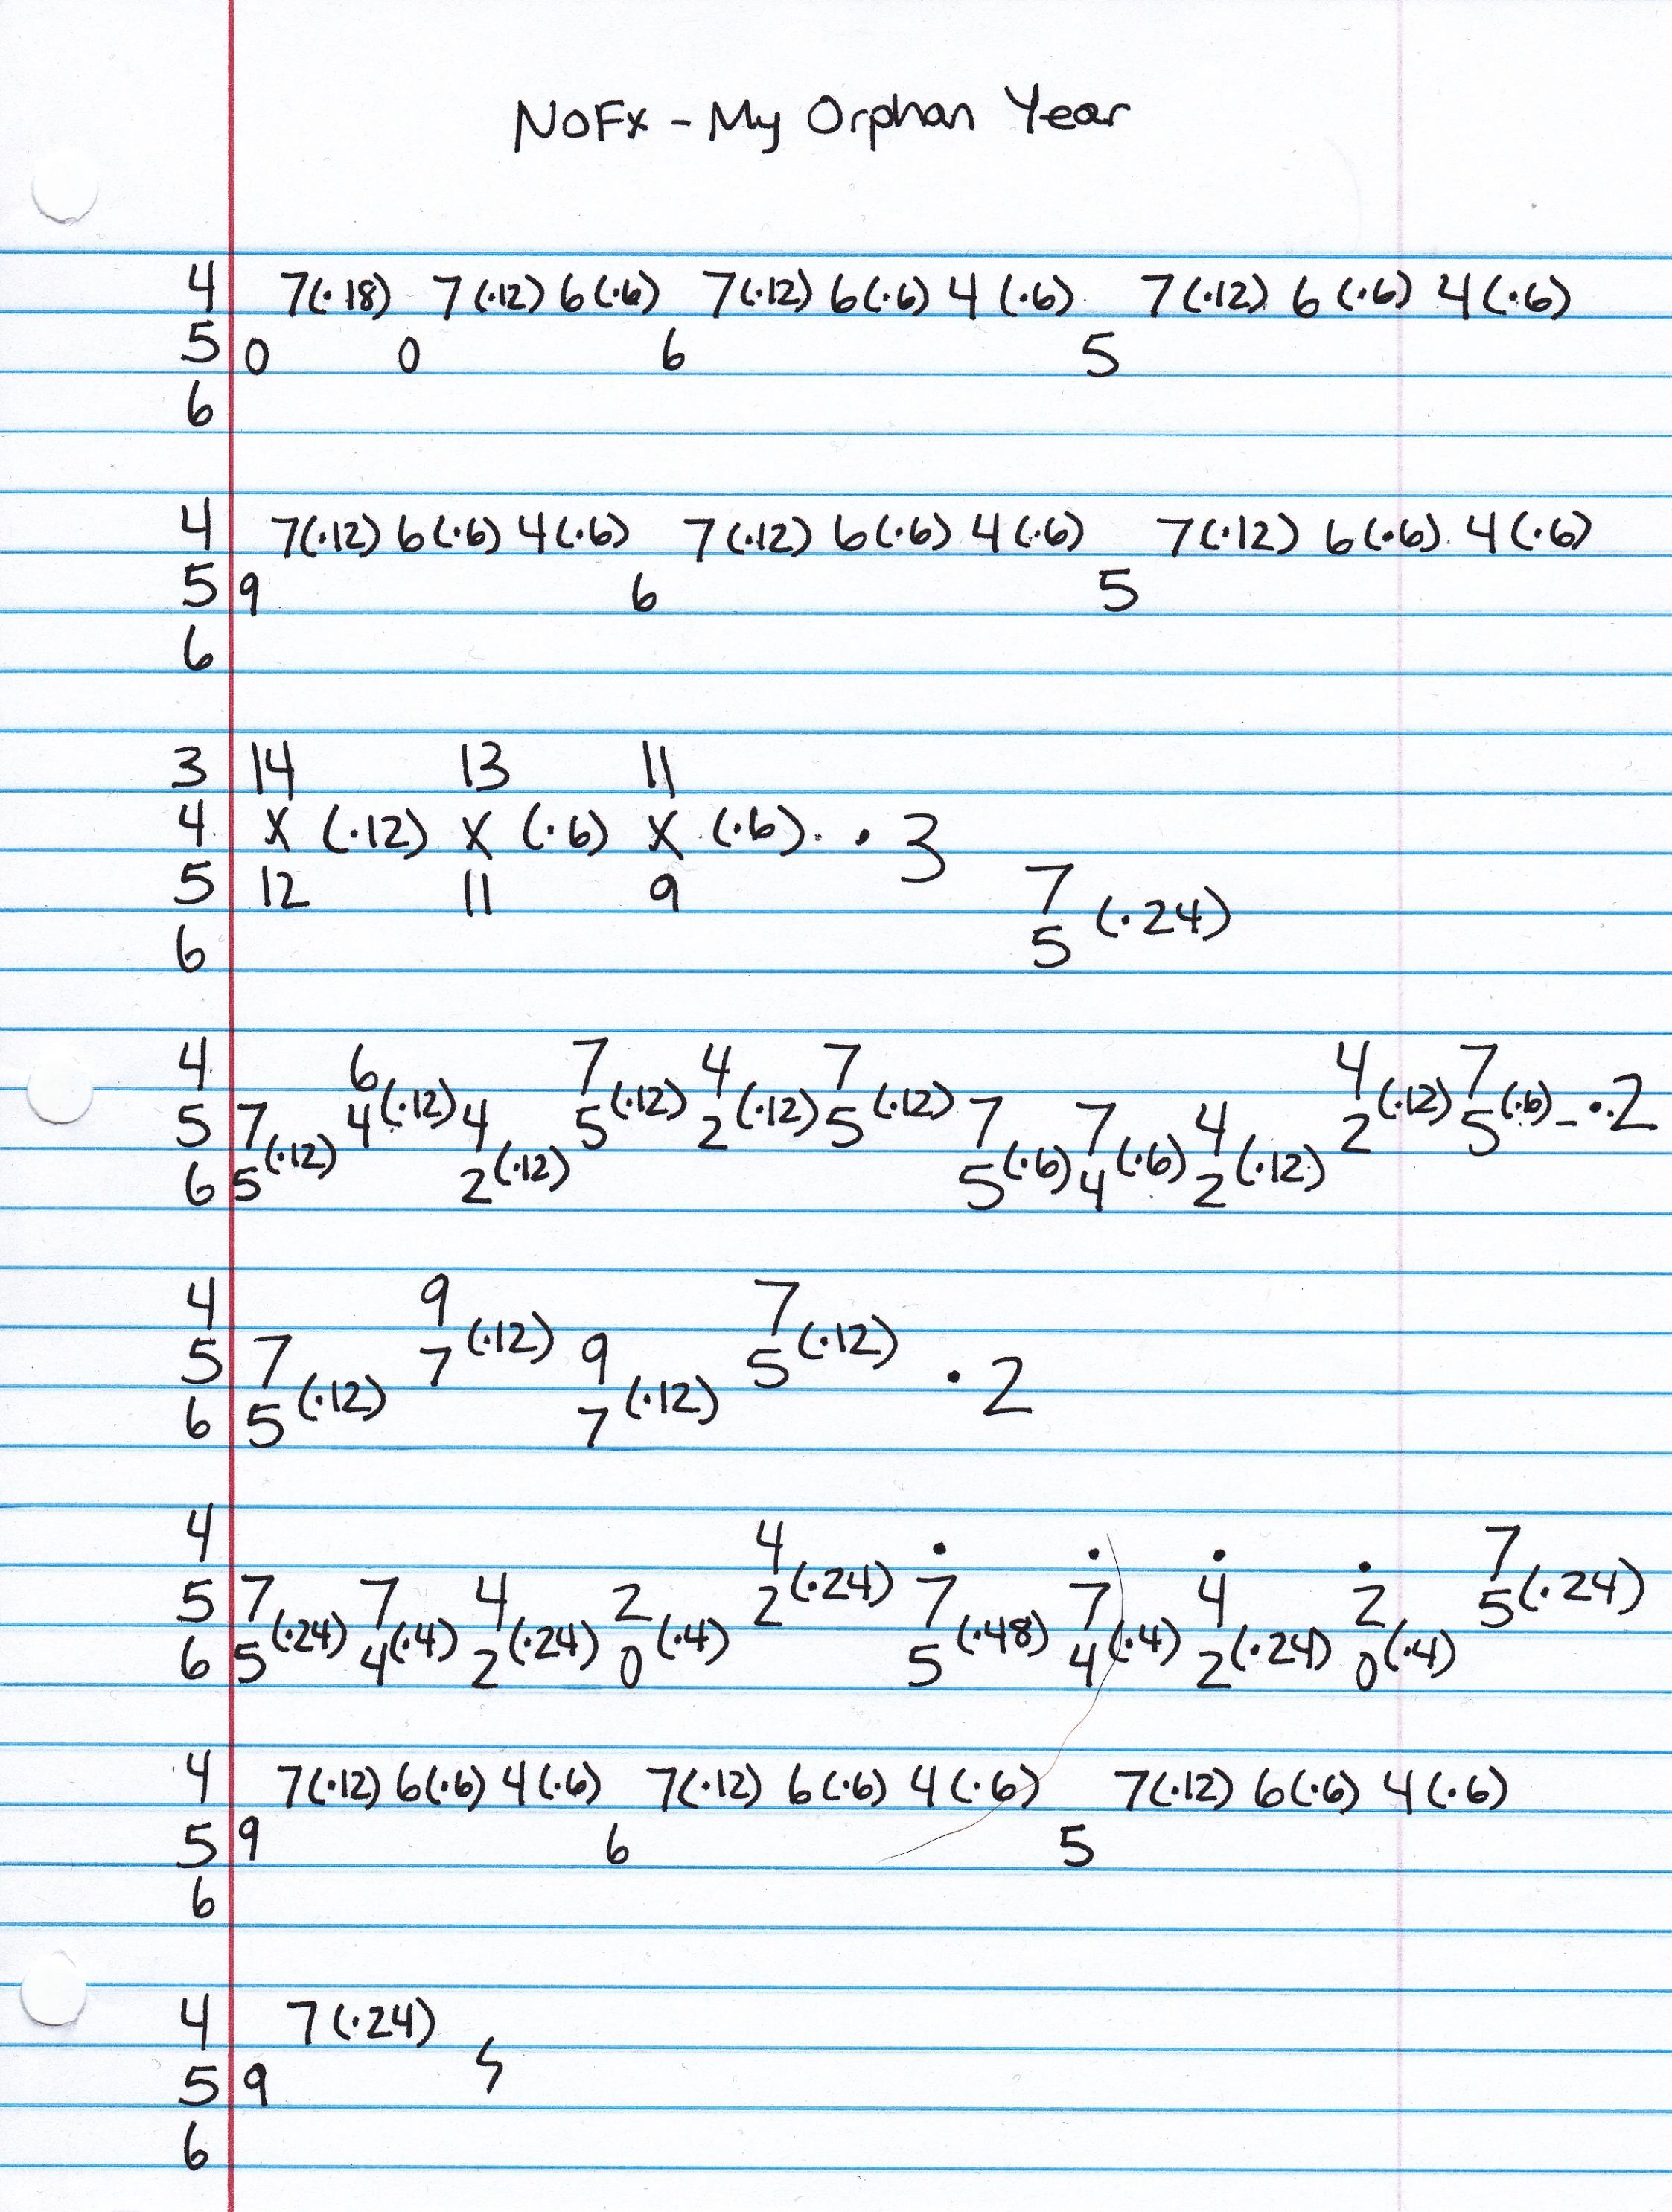 NOFX - My Orphan Year
4 7(·18) 7(·12) 6(·6) 7(·12) 6(·6) 4(·6) 7(·12) 6(·6) 4(·6)
5 0 0 6 5
6
4 7(·12) 6(·6) 4(·6) 7(·12) 6(·6) 4(·6) 7(·12) 6(·6) 4(·6)
5 9 6 5
6
3 14 13 11
4 X (·12) X (·6) X (·6) ·3
5 12 11 9 7
6 5 (·24)
4 6 7 4 7 4 7
5 7 4(·12) 4 5(·12) 2(·12) 5(·12) 7 7 4 2(·12) 5(·6) ·2
6 5(·12) 2(·12) 5(·6) 4(·6) 2(·12)
4 9 7
5 7 7(·12) 9 5(·12) ·2
6 5(·12) 7(·12)
4 4 · · · · 7
5 7 7 4 2 2(·24) 7 7 4 2 5(·24)
6 5(·24) 4(·4) 2(·24) 0(·4) 5(·48) 4(·4) 2(·24) 0(·4)
4 7(·12) 6(·6) 4(·6) 7(·12) 6(·6) 4(·6) 7(·12) 6(·6) 4(·6)
5 9 6 5
6
4 7(·24)
5 9
6